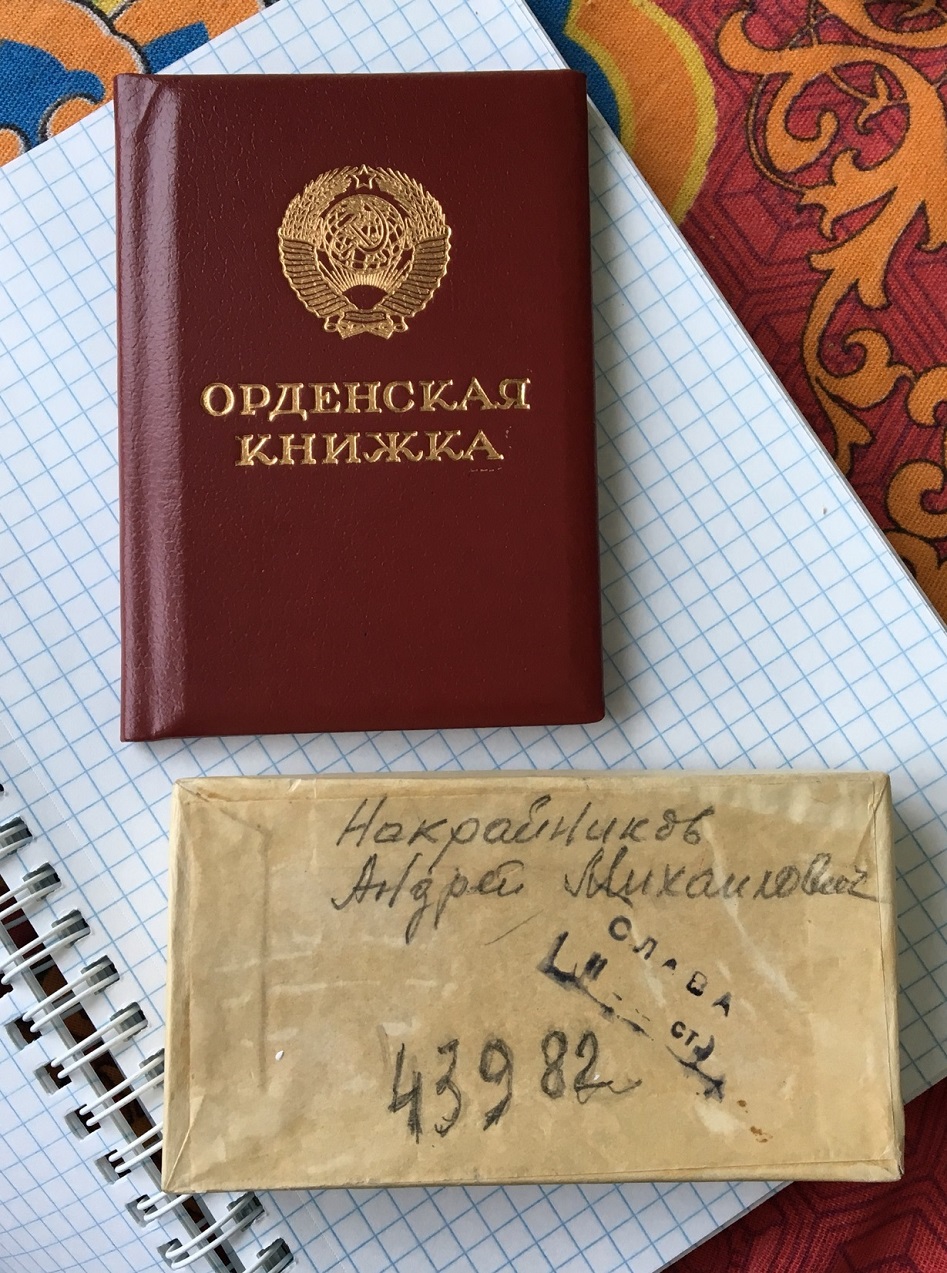 ОРДЕНСКАЯ
КНИЖКА
Накрайников
Андрей Михайлович
СЛАВА
II ст.
43982